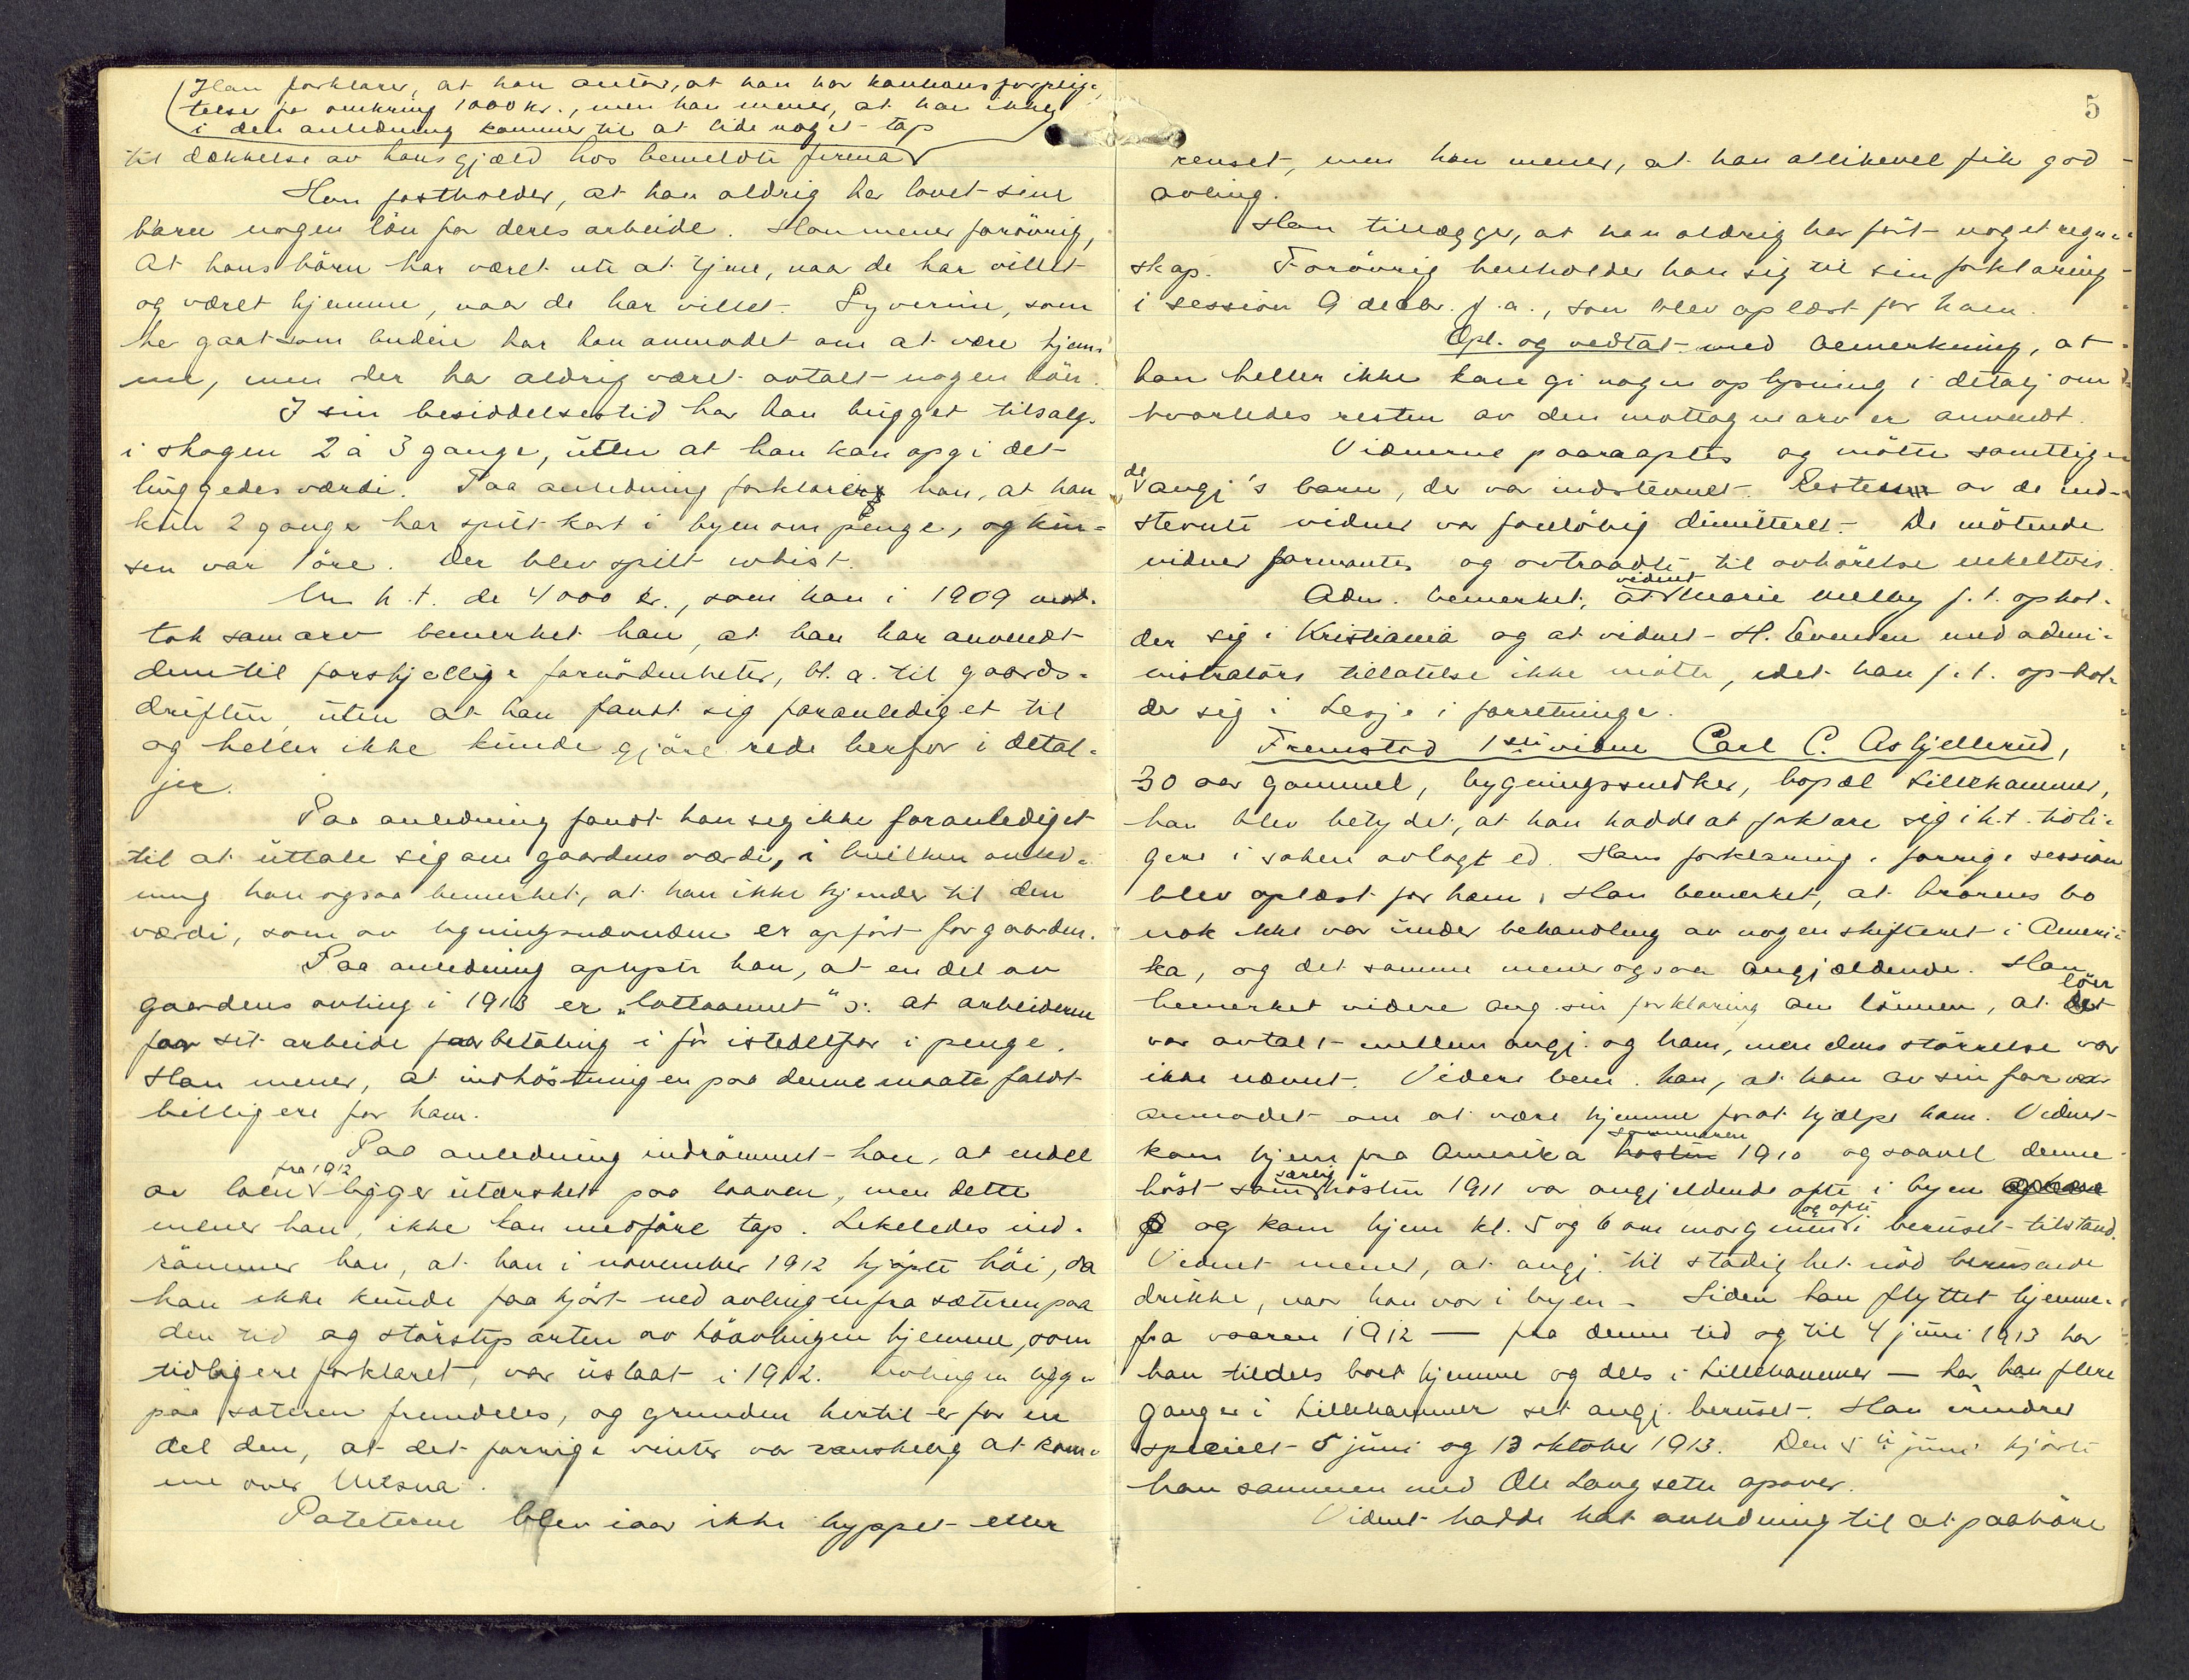 Han forklarer, at han antar, at han har kautionsforplig-
telser for omkring 1000 kr., men han mener, at han ikke
i den anledning kommer til at lide noget tap
til dækkelse av hans gjæld hos bemeldte firma
Han fastholder, at han aldrig har lovet sine
barn nogen lön for deres arbeide. Han mener forövrig,
at hans börn har været ute at tjene, naar de har villet
og været hjemme, naar de har villet. Syverine, som
har gaat som budeie har han anmodet om at være hjem-
me, men der har aldrig været avtalt nogen lön.
I sin besiddelsestid har han hugget tilsalg
i skogen 2 à 3 gange, uten at han kan opgi det
huggedes værdi. Paa anledning forklarer han, at han
kun 2 gange har spilt kort i byen om penge, og kur-
sen var 1 öre. Der blev spilt whist.
M. h. t. de 4000 kr., som han i 1909 mot-
tok som arv bemerket han, at han har anvendt
dem til forskjellige fornödenheter, bl. a. til gaards-
driften, uten at han fandt sig foranlediget til
og heller ikke kunde gjöre rede herfor i detal-
jer.
Paa anledning fandt han seg ikke foranlediget
til at uttale sig om gaardens værdi, i hvilken anled-
ning han ogsaa bemerket, at han ikke kjender til den
værdi, som av ligningsnævnden er opfört for gaarden.
Paa anledning oplyste han, at en del av
gaardens avling i 1913 er "lottaannet" ɔ: at arbeiderne
for sit arbeide faar betaling i fòr istedetfor i penge.
Han mener, at indhöstningen paa denne maate faldt
billigere for ham.
Paa anledning indrömmet han, at endel
av loen fra 1912 ligger utærsket paa laaven, men dette
mener han, ikke kan medföre tap. Lekeledes ind-
römmer han, at han i november 1912 kjöpte höi, da
han ikke kunde faa kjört ned avlingen fra sæteren paa
den tid og störsteparten av höavlingen hjemme, som
tidligere forklaret, var uslaat i 1912. Avlingen ligger
paa sæteren fremdeles, og grunden hertil er for en
del den, at det forrige vinter var vanskelig at kom-
me over Mesna.
Poteterne blev iaar ikke hyppet eller
5
renset, men han mener, at han allikevel fik god
avling.
Han tillægger, at han aldrig har fört noget regn-
skap. Forövrig henholder han sig til sin forklaring
i session 9 decbr. f. a., som blev oplæst for ham.
Opl. og vedtat med bemerkning, at
han heller ikke kan gi nogen oplysning i detalj om
hvorledes resten av den mottagne arv er anvendt.
Vidnerne paaroptes og mötte samtlige
de av angj's barn, der var indstevnet. Resten av de ind-
stevnte vidner var foreløbig dimitteret. De mötende
vidner formantes og avtraadte til avhörelse enkeltvis.
Adm. bemerket, at vidnet Marie Melby f. t. ophol-
der sig i Kristiania og at vidnet H. Evensen med admi-
nistrators tillatelse ikke mötte, idet han f. t. ophol-
der sig i Lesje i forretninger.
Fremstod 1ste vidne Carl C. Asbjellerud,
30 aar gammel, bygningssnedker, bopæl Lillehammer,
han blev betydet, at han hadde at forklare sig i h. t. tidli-
gere i saken avlagt ed. Hans forklaring i forrige session
blev oplæst for ham. Han bemerket, at brorens bo
nok ikke var under behandling av nogen skifteret i Ameri-
ka, og det samme mener ogsaa angjældende. Han
bemerket videre ang. sin forklaring om lönnen, at lön
var avtalt mellem angj. og ham, men dens störrelse var
ikke nævnt. Videre bem. han, at han av sin far var
anmodet om at være hjemme forat hjælpe ham. Vidnet
kom hjem fra Amerika sommeren 1910 og saavel denne
höst som særlig hösten 1911 var angjeldende ofte i byen
og kom hjem kl. 5 og 6 om morgenen og ofte i beruset tilstand.
Vidnet mener, at angj. til stadighet nöd berusende
drikke, naar han var i byen. Siden han flyttet hjemme-
fra vaaren 1912 — fra denne tid og til 4 juni 1913 har
han tildels boet hjemme og dels i Lillehammer — har han flere
ganger i Lillehammer set angj. beruset. Han erindrer
specielt 5 juni og 13 oktober 1913. Den 5te juni kjörte
han sammen med Ole Langsete opover.
Vidnet hadde hat anledning til at paahöre